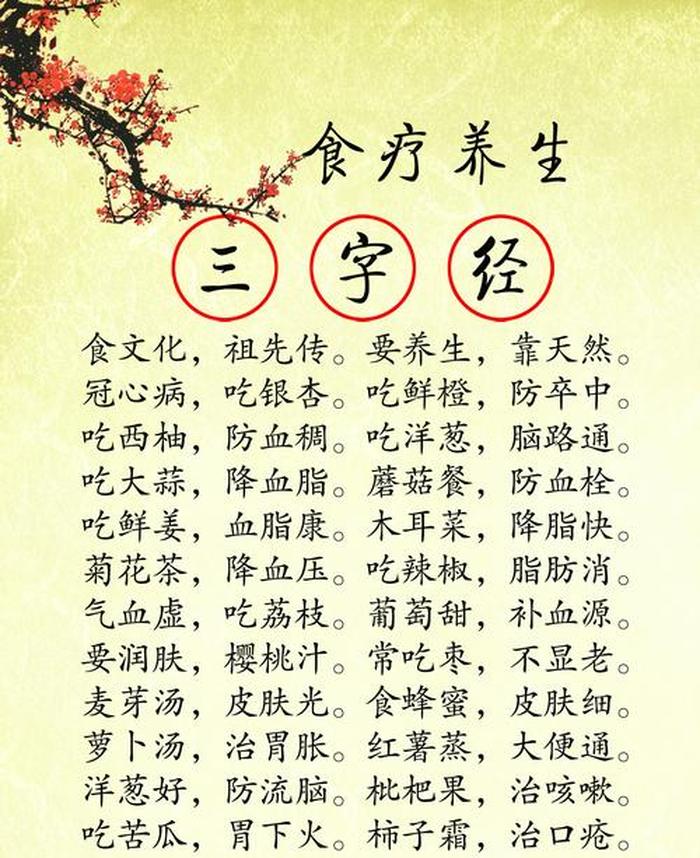 食疗养生
三字经
食文化，祖先传。要养生，靠天然。
冠心病，吃银杏。吃鲜橙，防卒中。
吃西柚，防血稠。吃洋葱，脑路通。
吃大蒜，降血脂。蘑菇餐，防血栓。
吃鲜姜，血脂康。木耳菜，降脂快。
菊花茶，降血压。吃辣椒，脂肪消。
气血虚，吃荔枝。葡萄甜，补血源。
要润肤，樱桃汁。常吃枣，不显老。
麦芽汤，皮肤光。食蜂蜜，皮肤细。
萝卜汤，治胃胀。红薯蒸，大便通。
洋葱好，防流脑。枇杷果，治咳嗽。
吃苦瓜，胃下火。柿子霜，治口疮。